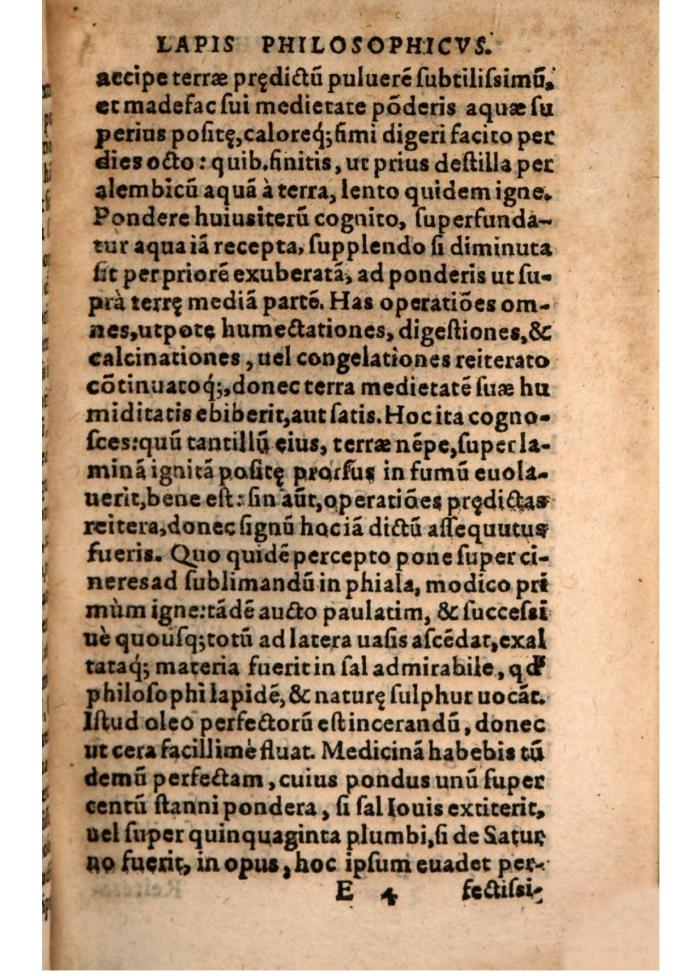 LAPIS PHILOSOPHICVS.
accipe terræ prędictũ puluerẽ ſubtiliſsimũ,
et madefac ſui medietate põderis aquæ ſu
perius poſitę, caloreq́; fimi digeri facito per
dies octo: quib. finitis, ut prius deſtilla per
alembicũ aquã à terra, lento quidem igne.
Pondere huius iterũ cognito, ſuperfundã-
tur aqua iã recepta, ſupplendo ſi diminuta
ſit per priorẽ exuberatã, ad ponderis ut ſu-
prà terrę mediã partẽ. Has operatiões om-
nes, utpote humectationes, digeſtiones, &
calcinationes, uel congelationes reiterato
cõtinuatoq́;, donec terra medietatẽ ſuæ hu
miditatis ebiberit, aut ſatis. Hoc ita cogno-
ſces: quũ tantillũ eius, terræ nẽpe, ſuper la-
minã ignitã poſitę prorſus in fumũ euola-
uerit, bene eſt: ſin aũt, operatiões prędictas
reitera, donec ſignũ hoc iã dictũ aſſequutus
fueris. Quo quidẽ percepto pone ſuper ci-
neres ad ſublimandũ in phiala, modico pri
mùm igne: tãdẽ aucto paulatim, & ſucceſsi
uè quouſq; totũ ad latera uaſis aſcẽdat, exal
tataq́; materia fuerit in ſal admirabile, qď
philoſophi lapidẽ, & naturę ſulphur uocãt.
Iſtud oleo perfectorũ eſt incerandũ, donec
ut cera facillimè fluat. Medicinã habebis tũ
demũ perfectam, cuius pondus unũ ſuper
centũ ſtanni pondera, ſi ſal Iouis extiterit,
uel ſuper quinquaginta plumbi, ſi de Satur
no fuerit, in opus, hoc ipſum euadet per-
E 4 fectiſsi-